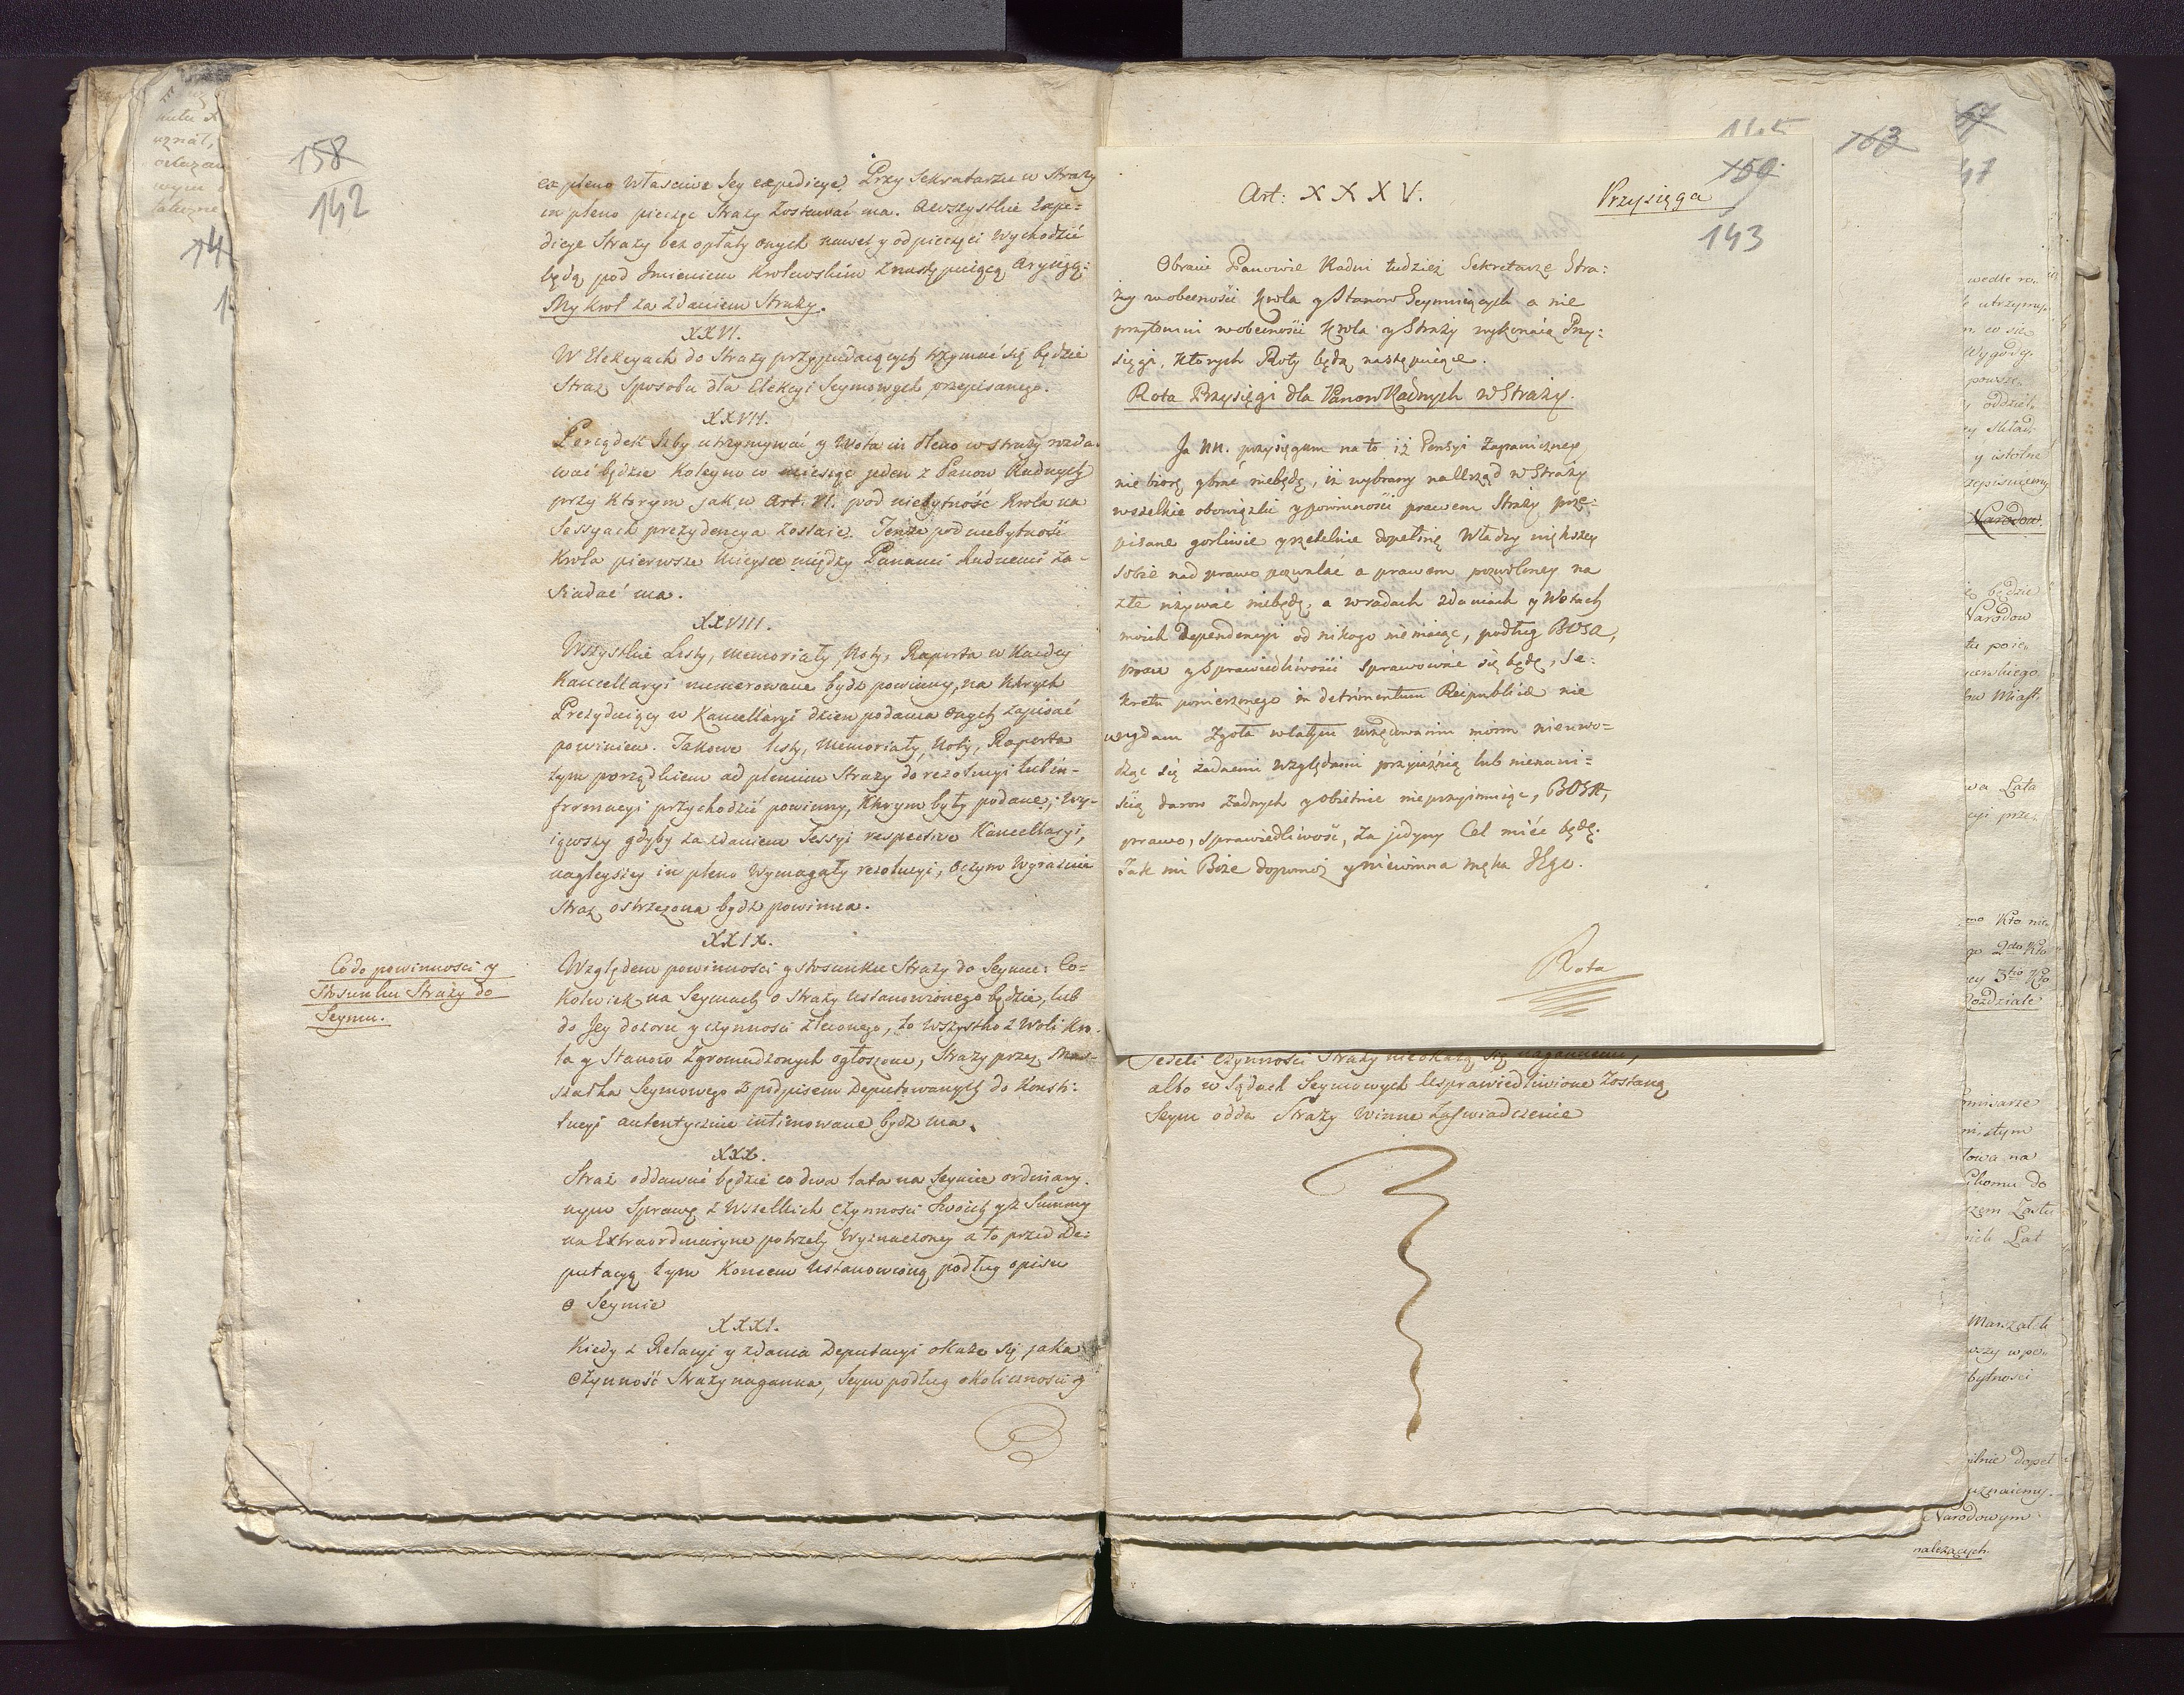 158
142
ex pleno właściwe Jey expedicye. Przy Sekretarzu w Straży
in pleno pieczęć Straży zostawać ma. A wszystkie Expe-
dicye Straży bez opłaty onych nawet y od pieczęci wychodzić
będą pod Imieniem Krolewskim z następuiącą
My Krol za zdaniem Straży.
XXVI.
W Elekcyach do Straży przypadaiących trzymać się będzie
Straż sposobu dla Elekcyi Seymowych przepisanego.
XXVII.
Porządek Izby utrzymywać y Wota in Pleno w straży rozda-
wać będzie Koleyno co miesiąc jeden z Panow Radnych
przy ktorym jak w Art. VI. pod niebytność Krola na
Sessyach prezydencya zostaie. Tenże pod niebytność
Krola pierwsze Mieysce między Panami Radnemi za-
siadać ma.
XXVIII.
Wszystkie Listy, Memoriały, Noty, Raporta w Kazdey
Kancellaryi numerowane bydz powinny, na Ktorych
Prezyduiący w Kancellaryi dzien podania onych zapisać
powinien. Takowe listy, Memoriały, Noty, Raporta
tym porządkiem ad plenum Straży do rezolucyi lub in-
formacyi przychodzić powinny, Ktorym były podane; wy-
iąwszy gdyby za zdaniem Sessyi respective Kancellaryi,
nagleyszey in pleno wymagały rezolucyi, o czym wyraznie
Straż ostrzezona bydz powinna.
XXIX.
Co do powinnosci y
Stosunku Straży do
Seymu.
Względem powinnosci y stosunku Straży do Seymu: Co-
kolwiek na Seymach o Straży ustanowionego będzie, lub
do Jey dozoru y czynnosci zleconego, to wszystko z Woli Kro-
la y Stanow zgromadzonych ogłoszone, Straży przez Mar-
szałka Seymowego z podpisem Deputowanych do Konsti-
tucyi autentycznie intimowane bydz ma.
XXX.
Straż oddawać będzie co dwa lata na Seymie ordinary-
nym Sprawę z Wszelkich czynnosci swoich y z Summy
na Extraordinaryne potrzeby wyznaczoney a to przed De-
putacyą tym Koncem ustanowioną podług opisu
o Seymie
XXXI.
Kiedy z Relacyi y zdania Deputacyi okaze się jaka
czynność Straży naganna, Seym podług okolicznosci y
163
150
143
Art: XXXV.
Przysięga
Obrani Panowie Radni tudzież Sekretarze Stra:
ży w obecności Krola y Stanow Seymuiących a nie
przytomni w obecności Krola y Straży wykonaią Przy:
sięgi, ktorych Roty będą następuiące.
Rota Przysięgi dla Panow Radnych w Straży.
Ja NN. przysięgam na to iż Pensyi zagraniczney
nie biorę y brać niebędę, iż wybrany na Urząd w Straży
wszelkie obowiązki y powinności prawem Straży prze-
pisane gorliwie y rzetelnie dopełnię Władzy większey
sobie nad prawo pozwalać a prawem pozwoloney na
złe używać niebędę, a w radach zdaniach y Wotach
moich Dependencyi od nikogo nie maiąc, podług BOGA,
praw y Sprawiedliwości sprawować się będę, Se:
kretu powierzonego in detrimentum Reipublicæ nie
wydam Zgoła w całym urzędowaniu moim nieuwo-
dząc się żadnemi względami przyiaźnią lub nienawi-
ścią darow żadnych y obietnic nieprzyimuiąc, BOGA,
prawo, sprawiedliwość, za jedyny Cel mieć będę.
Tak mi Boże dopomóż y niewinna męka Jego.
Rota
Jeżeli czynności Straży nieokażą się nagannemi,
albo w Sądach Seymowych usprawiedliwione zostaną
Seym odda Straży winne zaświadczenie
Narodow
będzie
Narodow
wa Lata
2do Kto
3tio Kto
Rozdziale
Lat
Marszałk
bytności
uznaiemy.
Narodowym
należących.